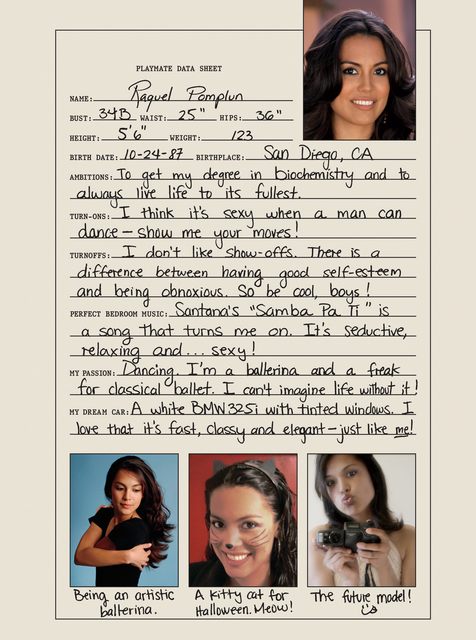 PLAYMATE DATA SHEET
NAME: Raquel Pomplun
BUST: 34B WAIST: 25" HIPS: 36"
HEIGHT: 5'6" WEIGHT: 123
BIRTH DATE: 10-24-87 BIRTHPLACE: San Diego, CA
AMBITIONS: To get my degree in biochemistry and to
always live life to its fullest.
TURN-ONS: I think it's sexy when a man can
dance—show me your moves!
TURNOFFS: I don't like show-offs. There is a
difference between having good self-esteem
and being obnoxious. So be cool, boys!
PERFECT BEDROOM MUSIC: Santana's "Samba Pa Ti" is
a song that turns me on. It's seductive,
relaxing and... sexy!
MY PASSION: Dancing. I'm a ballerina and a freak
for classical ballet. I can't imagine life without it!
MY DREAM CAR: A white BMW 325i with tinted windows. I
love that it's fast, classy and elegant—just like me!
Being an artistic
ballerina.
A kitty cat for
Halloween. Meow!
The future model!